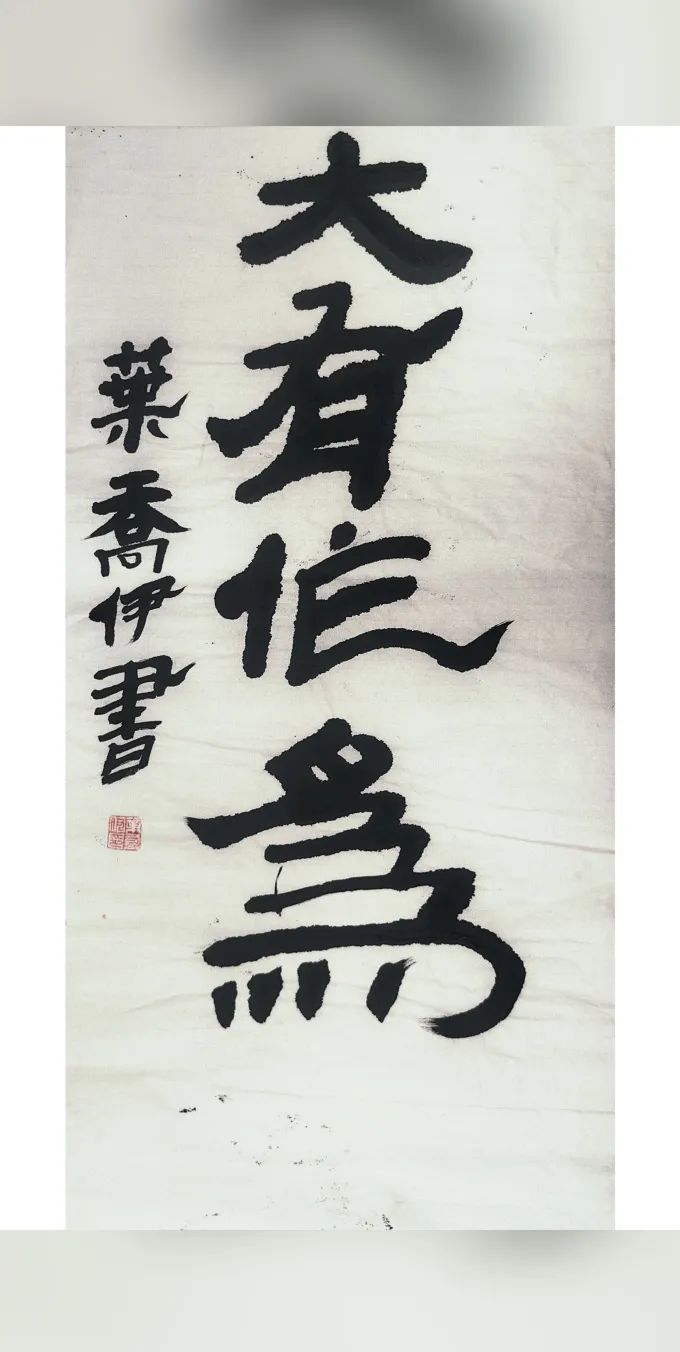 大有作為
葉喬伊書